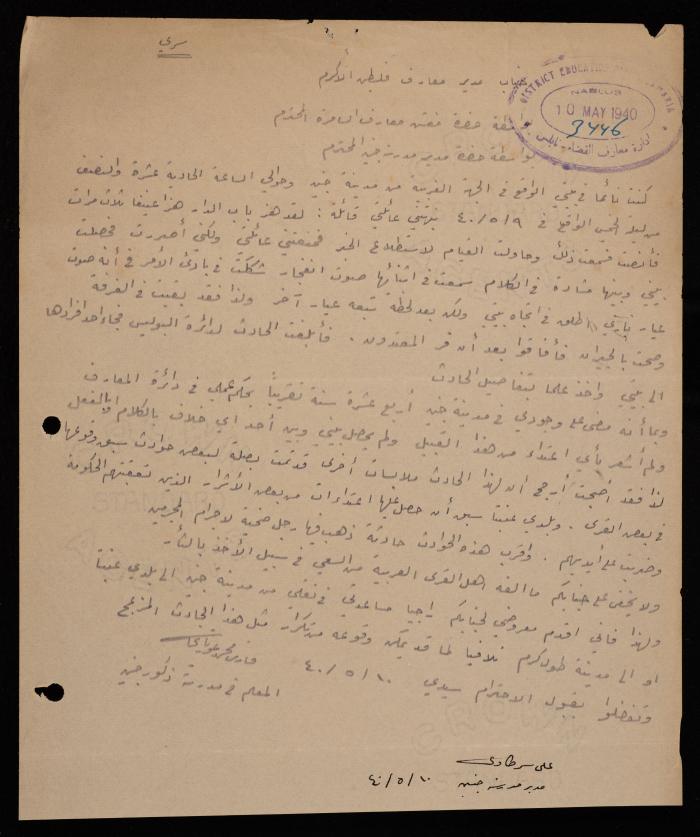 سري
جناب مدير معارف فلسطين الأكرم
بواسطة حضرة مفتش معارف السامرة المحترم
بواسطة حضرة مدير مدرسة جنين المحترم
DISTRICT EDUCATION
NABLUS
10 MAY 1940
3446
ادارة معارف القضاء نابلس
كنت نائما في بيتي الواقع في الجهة الغربية من مدينة جنين وحوالي الساعة الحادية عشرة والنصف
من ليلة الخميس الواقع في ٤٠/٥/٩ نبهتني عائلتي قائلة : لقد هز باب الدار هزا عنيفا ثلاث مرات
فأنصت فسمعت ذلك وحاولت القيام لاستطلاع الخبر فمنعتني عائلتي ولكني أصررت فحصلت
بيني وبينها مشادة في الكلام سمعت في اثنائها صوت انفجار شككت في بادئ الأمر في أنه صوت
عيار ناري اطلق في اتجاه بيتي ولكن بعد لحظة تبعه عيار آخر ولذا فقد بقيت في الغرفة
وصحت بالجيران فأفاقوا بعد أن فر المعتدون . فأبلغت الحادث لدائرة البوليس فجاء احد افرادها
الى بيتي واخذ علما بتفاصيل الحادث
وبما أنه مضى على وجودي في مدينة جنين أربع عشرة سنة تقريباً بحكم عملي في دائرة المعارف
ولم أشعر بأي اعتداء من هذا القبيل ولم يحصل بيني وبين أحد اي خلاف بالكلام او بالفعل
لذا فقد أصبحت أرجح أن لهذا الحادث ملابسات أخرى قد تمت بصلة لبعض حوادث سبق وقوعها
في بعض القرى . وبلدي عنبتا سبق أن حصل عليها اعتداءات من بعض الأشرار الذين تعقبتهم الحكومة
وضربت على أيديهم . واقرب هذه الحوادث حادثة ذهب فيها رجل ضحية لاجرام المجرمين
ولا يخفى على جنابكم ما ألفه اهل القرى العربية من السعي في سبيل الأخذ بالثأر
ولهذا فاني اقدم معروضي لجنابكم راجيا مساعدتي في نقلي من مدينة جنين الى بلدي عنبتا
او الى مدينة طولكرم تلافيا لما قد يمكن وقوعه من تكرار مثل هذا الحادث المزعج
وتفضلوا بقبول الاحترام سيدي ٤٠/٥/١٠
المعلم في مدرسة ذكور جنين
علي سرطاوي
مدير مدرسة جنين ٤٠/٥/١٠